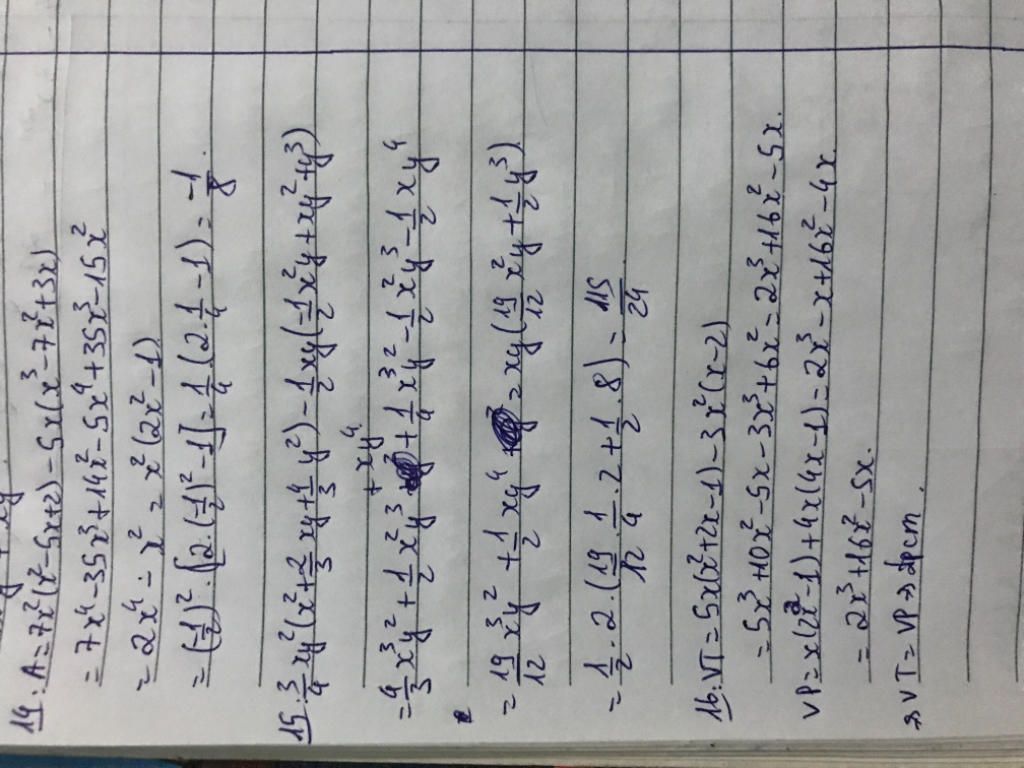 14: A = 7x²(x² - 5x + 2) - 5x(x³ - 7x² + 3x)
= 7x⁴ - 35x³ + 14x² - 5x⁴ + 35x³ - 15x²
= 2x⁴ - x² = x²(2x² - 1)
= (-1/2)² . [2.(-1/2)² - 1] = 1/4 (2.1/4 - 1) = -1/8.
15: 3/4 xy²(x² + 2/3 xy + 4/3 y²) - 1/2 xy(-1/2 x²y + xy² + y³)
+ xy⁴
= 4/3 x³y² + 1/2 x²y³ + 1/4 x³y² - 1/2 x²y³ - 1/2 xy⁴
= 19/12 x³y² + 1/2 xy⁴ = xy(19/12 x²y + 1/2 y³)
= 1/2 . 2 . (19/12 . 1/4 . 2 + 1/2 . 8) = 115/24
16: VT = 5x(x² + 2x - 1) - 3x²(x - 2)
= 5x³ + 10x² - 5x - 3x³ + 6x² = 2x³ + 16x² - 5x.
VP = x(2x² - 1) + 4x(4x - 1) = 2x³ - x + 16x² - 4x
= 2x³ + 16x² - 5x.
⇒ VT = VP ⇒ đpcm.